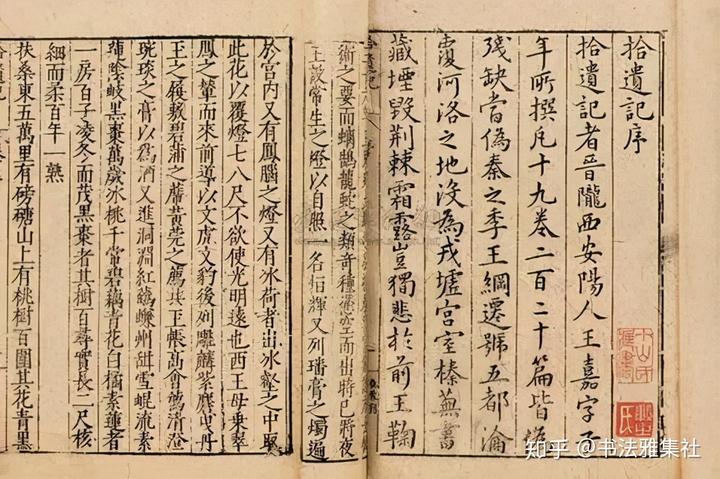 拾遺記序
拾遺記者晉隴西安陽人王嘉字子
年所撰凡十九卷二百二十篇皆為
殘缺當偽秦之季王綱遷號五都淪
覆河洛之地沒為戎墟宮室榛蕪書
藏堙毀荆棘霜露豈獨悲於前王鞠
術之要而螭鵠龍蛇之類奇種憑空而出時已將夜
王設常生之燈以自照一名恒輝又列璠膏之燭遍
於宮內又有鳳腦之燈又有冰荷者出冰壑之中取
此花以覆燈七八尺不欲使光明遠也西王母乘翠
鳳之輦而來前導以文虎文豹後列雕麟紫麏曳丹
玉之履敷碧蒲之席黃莞之薦共玉帳高會薦清澄
琬琰之膏以為酒又進洞淵紅蘤嵊州甜雪崐流素
蓮陰岐黑棗萬歲冰桃千常碧藕青花白橘素蓮者
一房百子凌冬而茂黑棗者其樹百尋實長二尺核
細而柔百年一熟
扶桑東五萬里有磅磄山上有桃樹百圍其花青黑
知乎 @书法雅集社